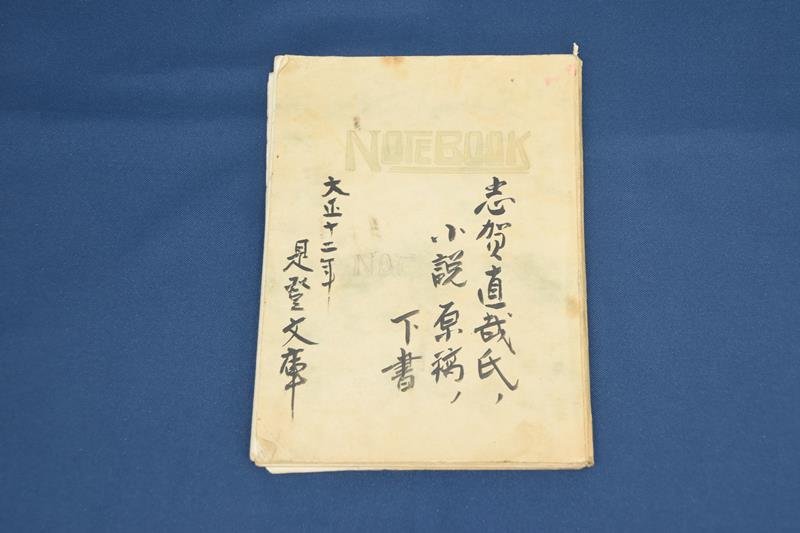 NOTEBOOK
志賀直哉氏,
小説原稿,
下書
大正十二年
是登文庫